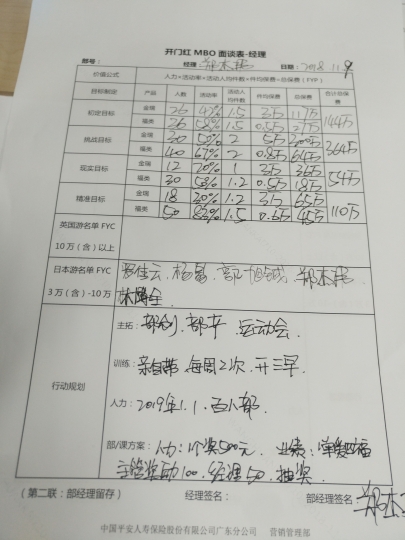 开门红 MBO 面谈表-经理
部号： 经理： 日期：2018.11.9
价值公式 人力×活动率×活动人均件数×件均保费=总保费（FYP）
目标制定 产品 人数 活动率 活动人均件数 件均保费 总保费 合计总保费
初定目标 金瑞 26 1.5 3万 117万 144万
福类 26 58% 1.5 0.5万
挑战目标 金瑞 30 50% 2 5万 300万 364万
福类 40 67% 2 0.8万 64万
现实目标 金瑞 12 1 3万 36万 54万
福类 30 50% 1.2 0.5万 18万
精准目标 金瑞 18 30% 1.2 65万 110万
福类 50 1.5 0.6万 45万
英国游名单 FYC
10万（含）以上
日本游名单 FYC
3万（含）-10万
行动规划
主拓： 运动会
训练：亲自带、每周2次、开三早
人力：2019年1.1、百人部
部/课方案：人力：1个奖500元、业绩：
主管奖励100、经理50、抽奖
（第二联：部经理留存） 经理签名： 部经理签名：
中国平安人寿保险股份有限公司广东分公司 营销管理部